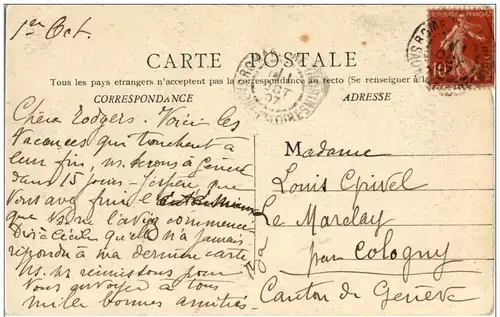 1er Oct.
CARTE POSTALE
Tous les pays etrangers n'acceptent pas la correspondance au recto (Se renseigner à la
CORRESPONDANCE
ADRESSE
Chère Rodgers. Voici les
vacances qui touchent à
leur fin, ns. serons à Genève
dans 15 jours. J'espère que
vous avez fini
que
commence
Dis à Cécile qu'elle n'a jamais
répondu à ma dernière carte.
ns. ns. réunissons pour
vous envoyer à tous
mille bonnes amitiés.
Madame
Louis Chivel
Le Marclay
par Cologny
Canton de Genève
OCT
07
10